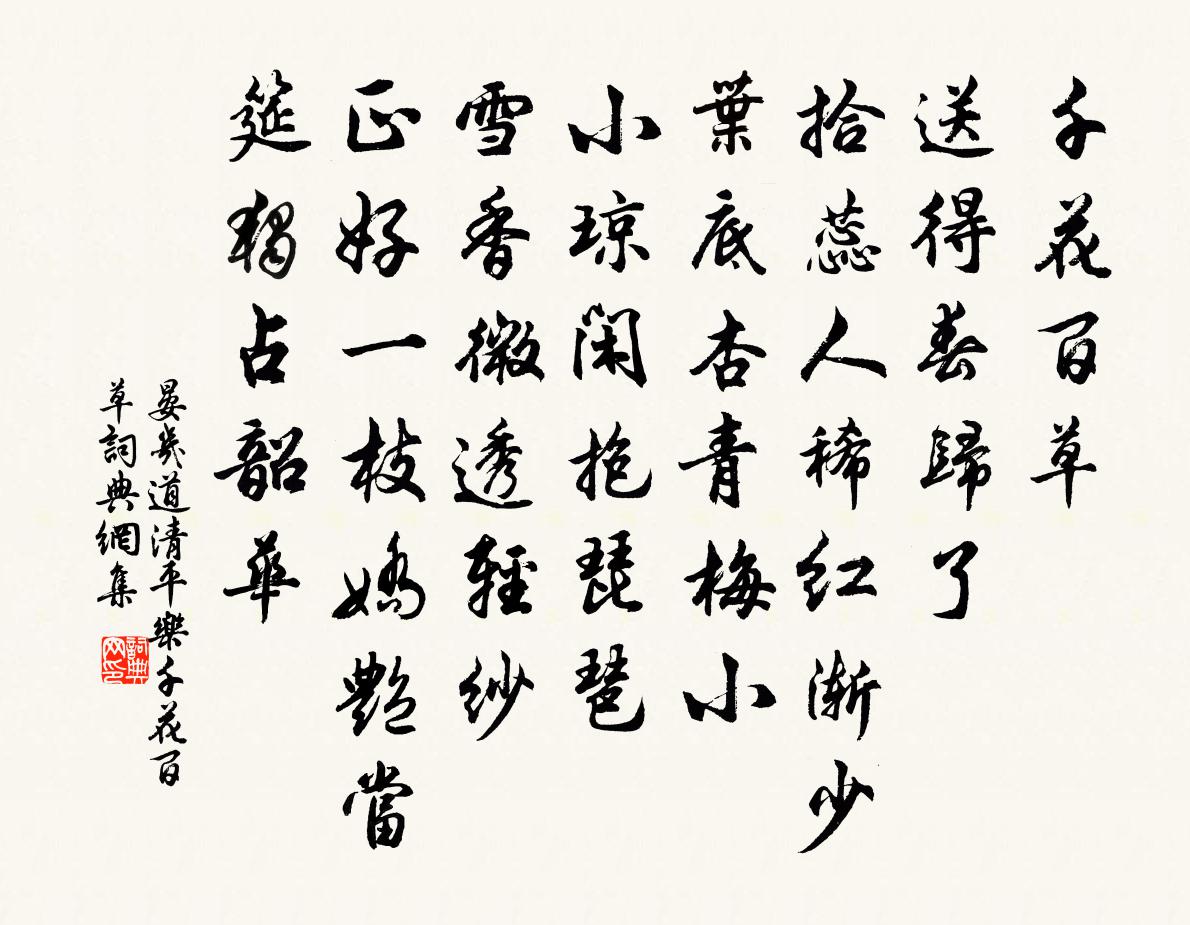 千花百草
送得春歸了
拾蕊人稀紅漸少
葉底杏青梅小
小瓊閑抱琵琶
雪香微透輕紗
正好一枝嬌艷當
筵獨占韶華
晏幾道清平樂千花百
草詞典網集
詞典
网印